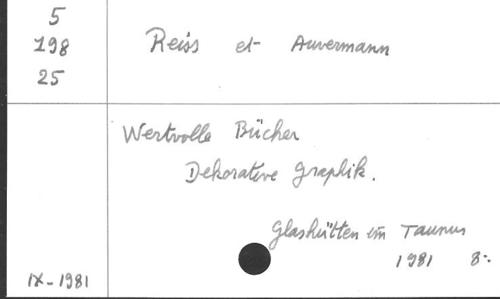 5
198
25
Reiss et Auvermann
Wertvolle Bücher
Dekorative Graphik.
Glashütten im Taunus
1981 8:-
IX-1981